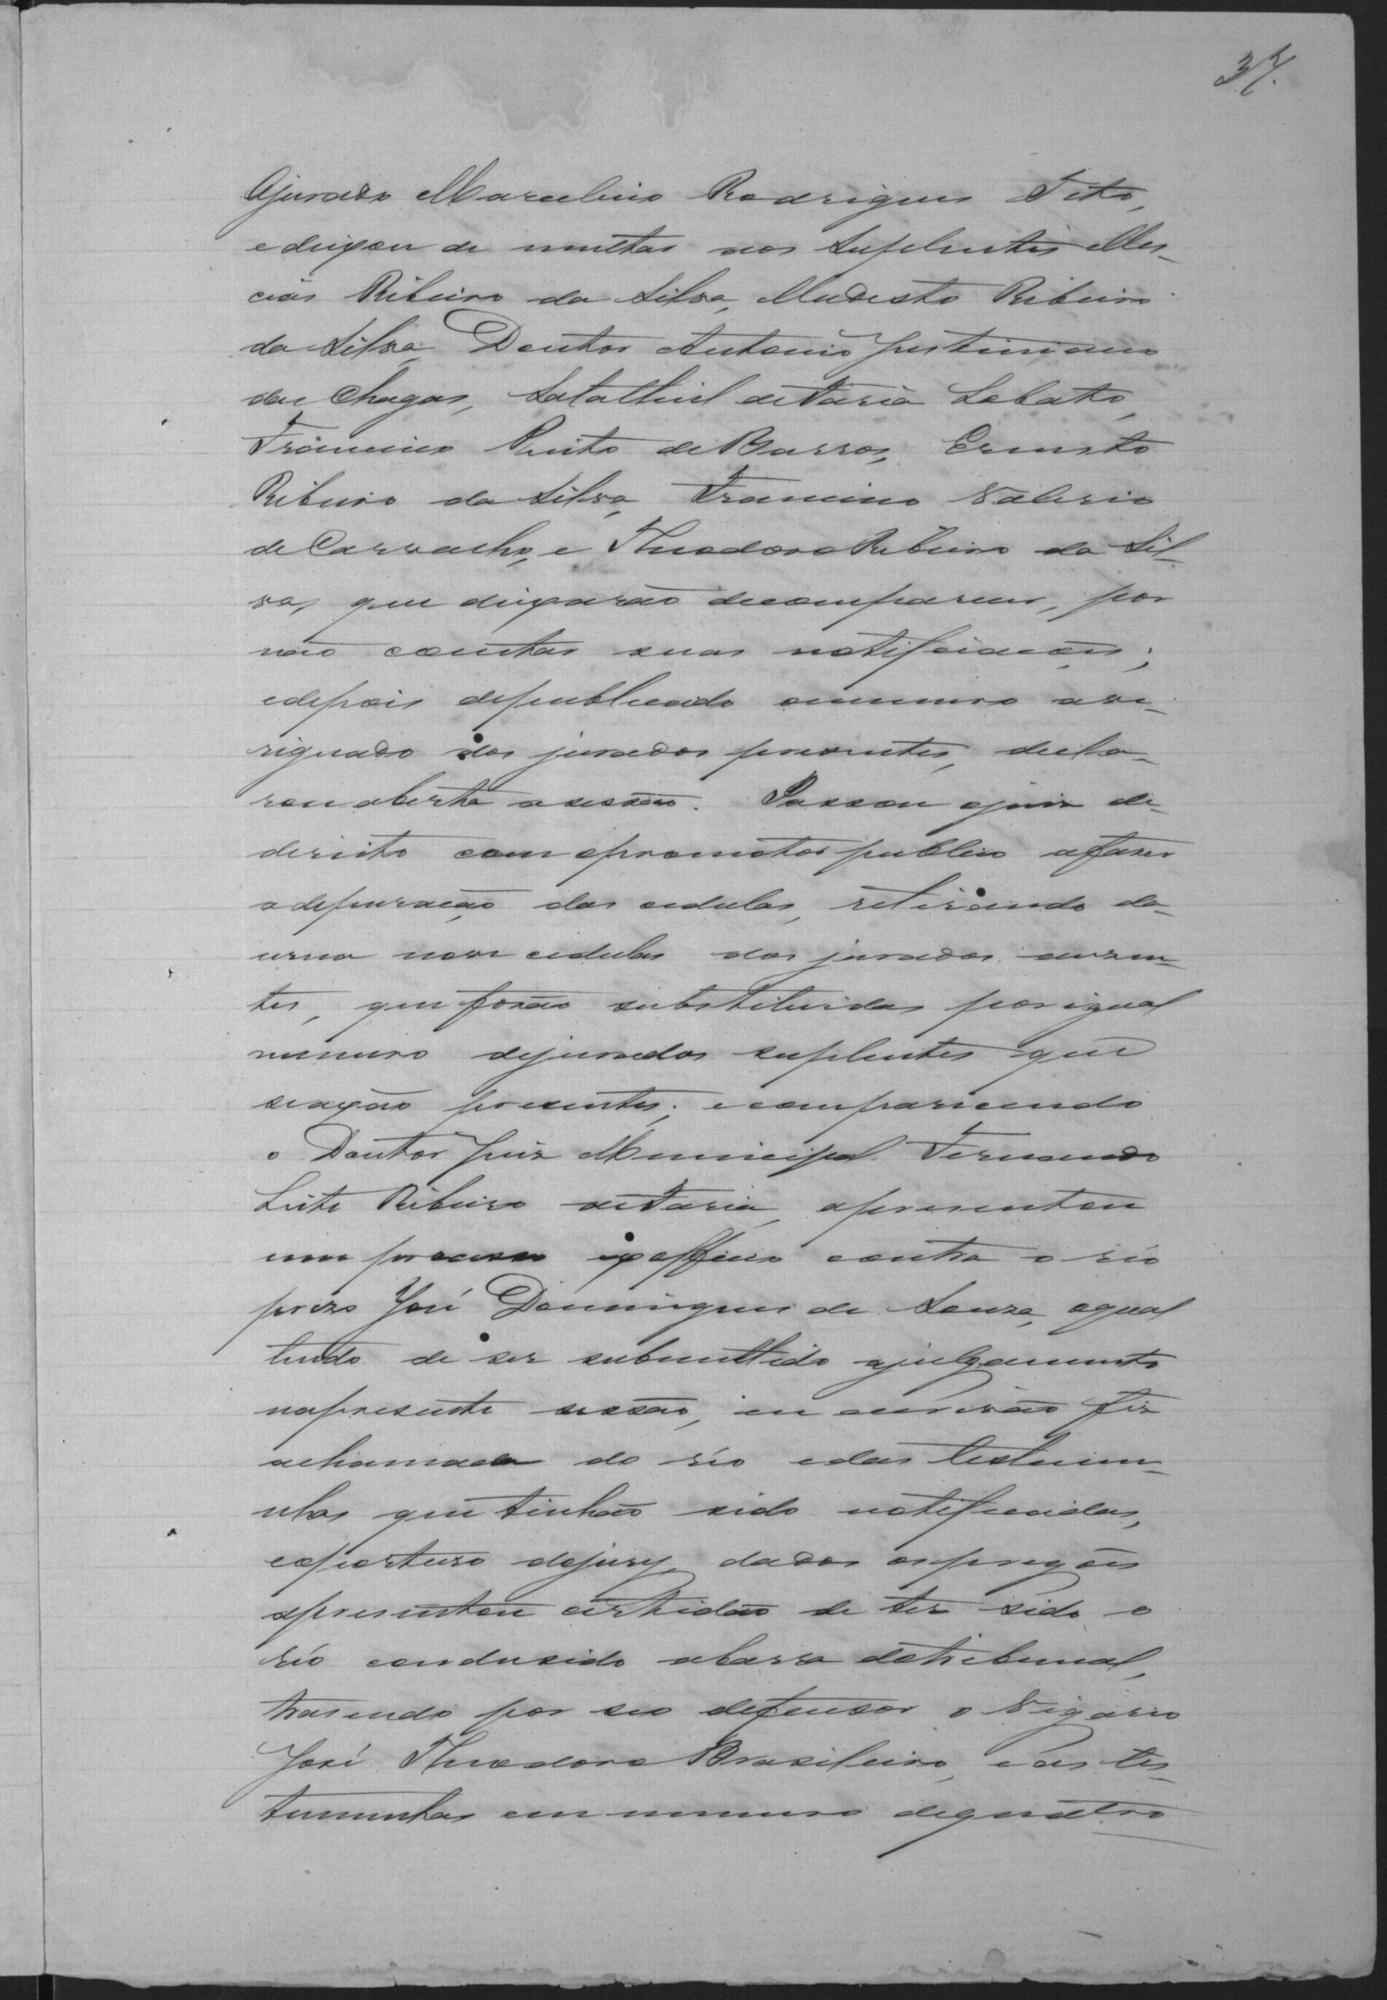 37.
Ojurado Marcelino Rodrigues Tito,
edeixou de multar aos suplentes Mes-
cias Ribeiro da Silva, Modesto Ribeiro
da Silva, Doutor Antonio Justiniano
das Chagas, Salathiel deFaria Lobato,
Francisco Pinto de Barros, Ernesto
Ribeiro da Silva, Francisco Valerio
de Carvalho, e Theodoro Ribeiro da Sil-
va, que deixarão decomparecer, por
não constar suas notificações;
edepois depublicado onumero ave-
riguado dos jurados presentes, decla-
rou aberta asessão. Passou ojuis de
dereito com opromotor publico afaser
adepuração das cedulas, retirando da
urna nove cedulas dos jurados ausen-
tes, que forão substituidas por igual
numero dejurados suplentes que
seaxão presentes; ecomparecendo
o Doutor Juiz Municipal Fernando
Leite Ribeiro deFaria, apresentou
um processo exofficio contra o réo
prezo José Domingues de Souza, oqual
tendo de ser submettido ajulgamento
napresente sessão, eu escrivão fiz
achamada do réo edas testemu-
nhas que tinhão sido notificadas,
eoporteiro dojury, dados ospregões
apresentou certidão de ter sido o
réo condusido abarra dotribunal,
trasendo por seo defensor o Vigario
José Theodoro Brasileiro, e as tes-
temunhas em numero dequatro